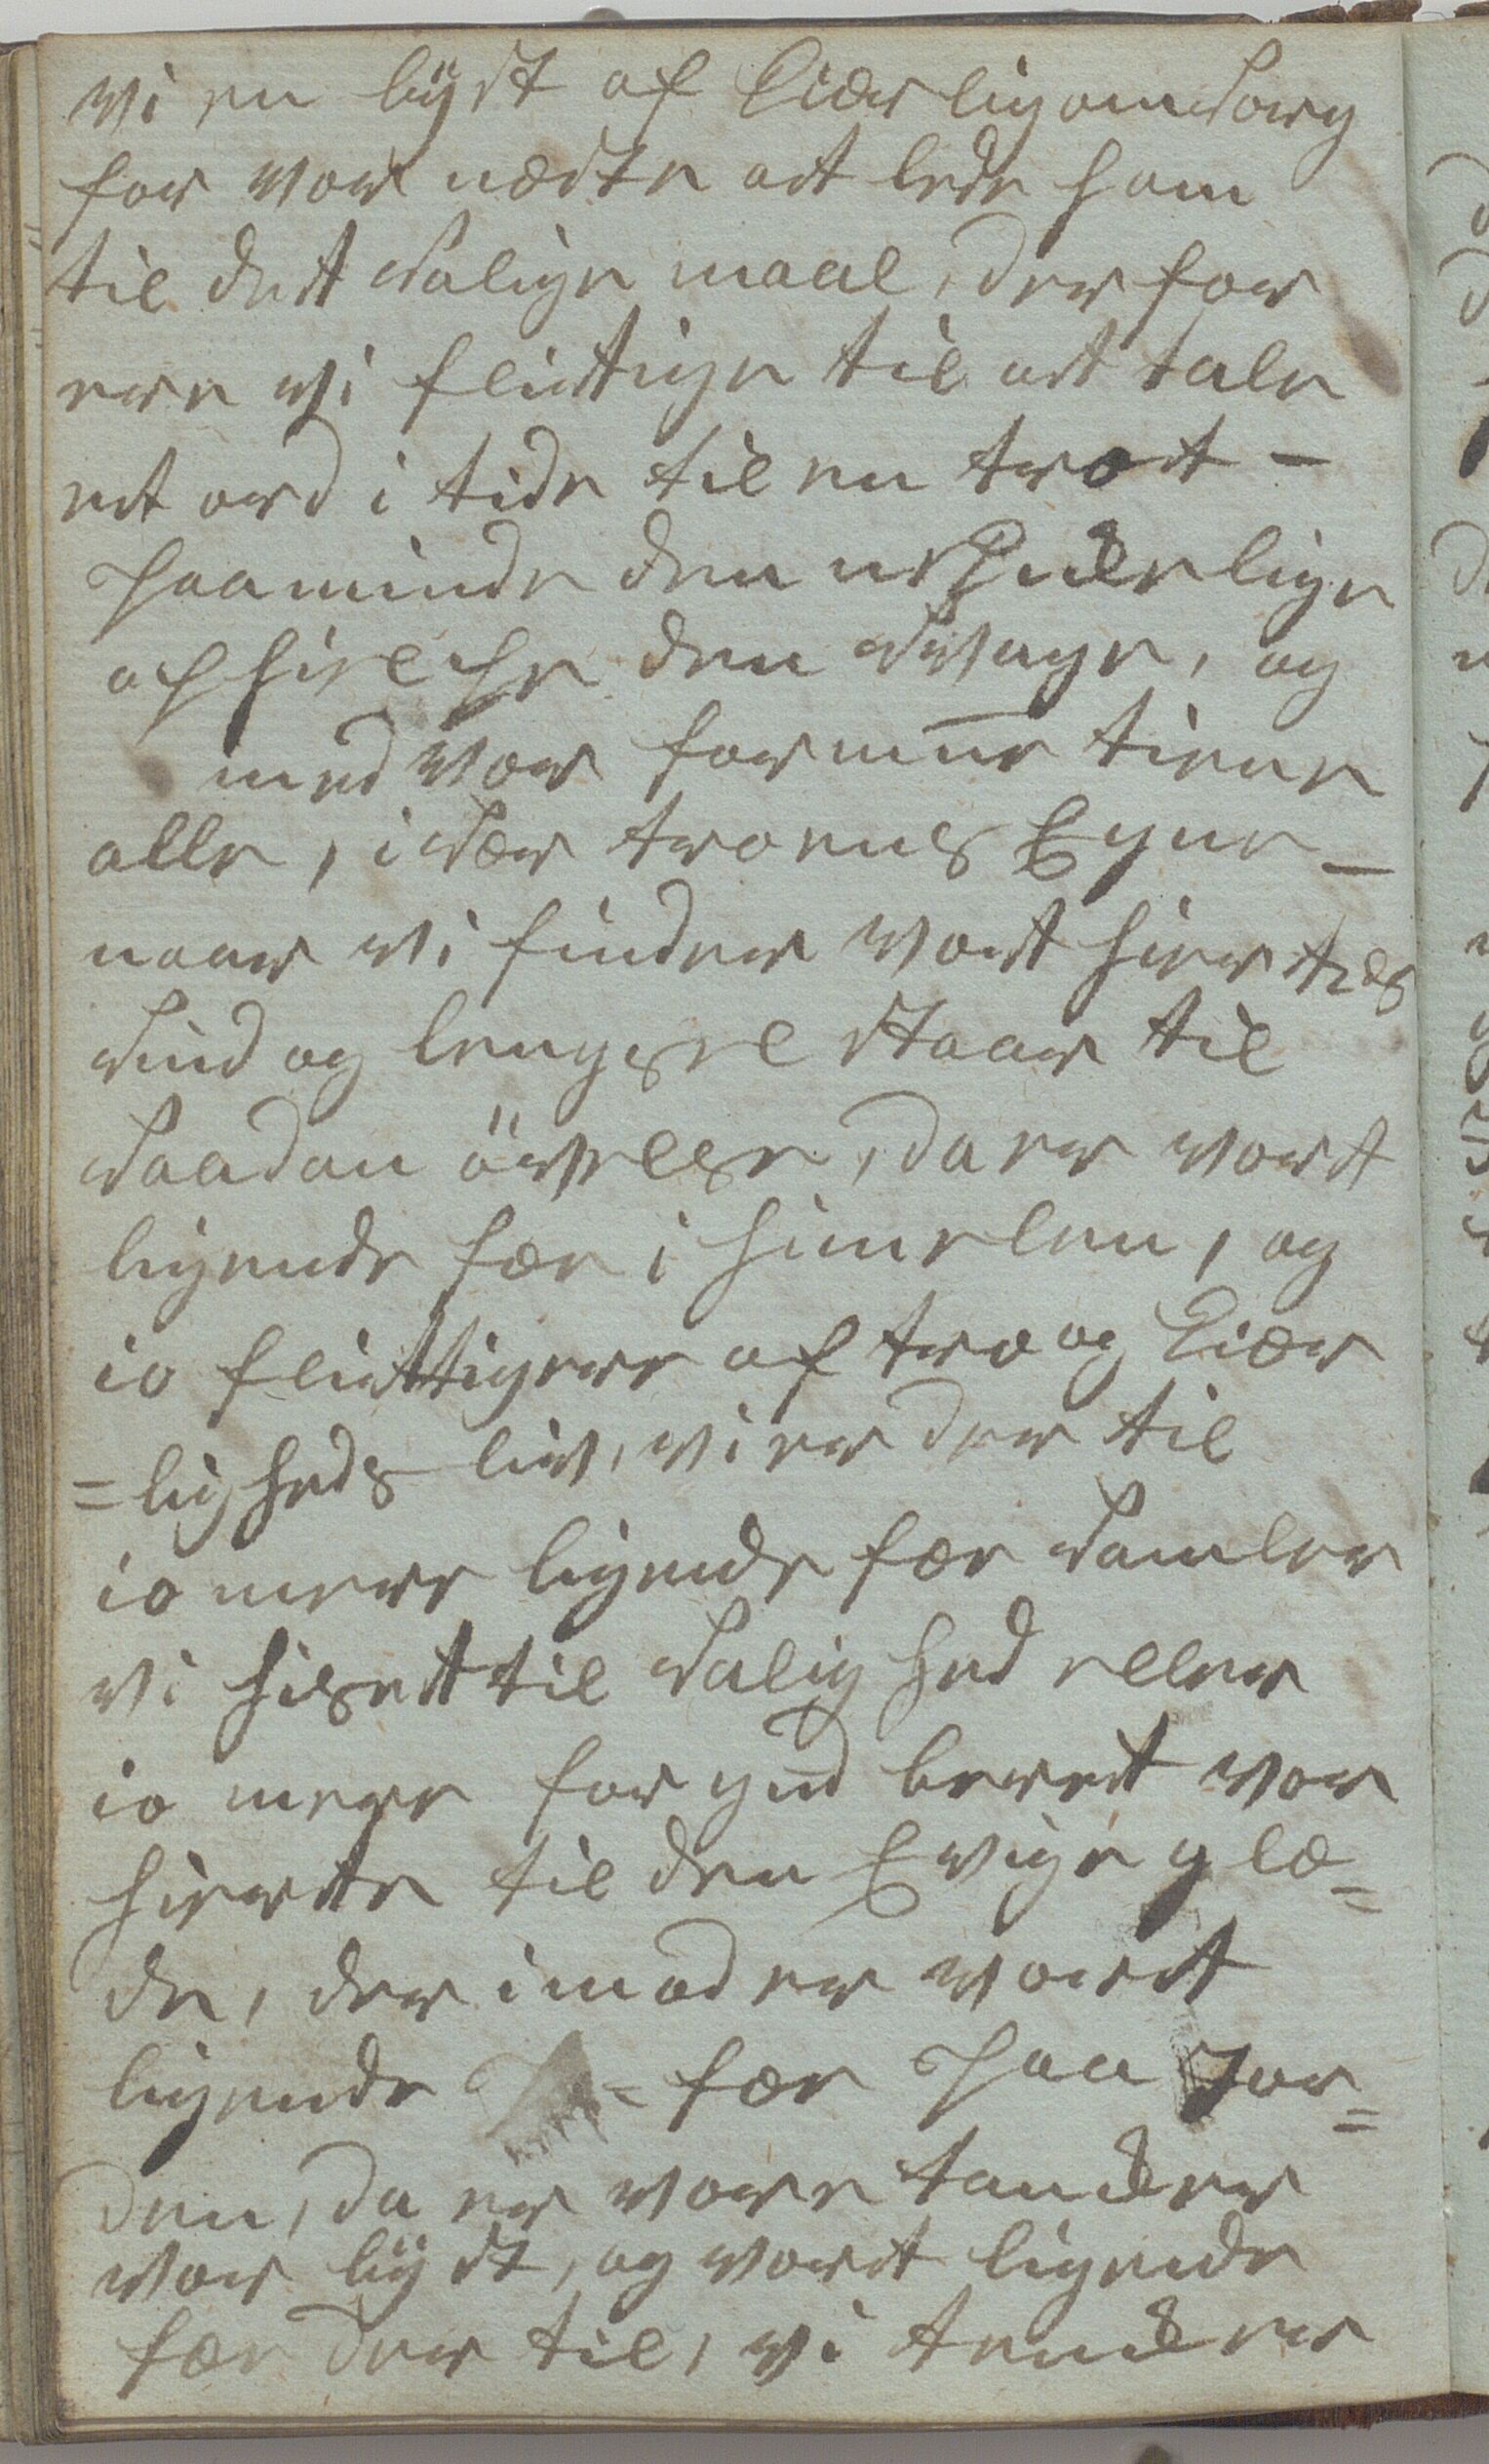 vi en lÿst af kiærlig omsorg
for vor næste at lede ham
til det salige maal, der for
ere vi flittige til at tale
et ord i tide til en træt -
paaminde den uskikkerlige
ophielpe den svage, og
med vor formue tiene
alle, i sær troens Egne -
naar vi finder vort hiertes
sind og lengsel staar til
saadan öwelse, da er vort
ligende fæe i himelen, og
io flittigere af tro og kiær
=ligheds liv, vi er der til
io mere ligende fæe samler
vi hiset til salighed eller
io mere for gud beret vor
hierte til den Evige glæ=
de, der imod er vort
ligende = fæe paa Jor=
den, da er vore tancker
vor lÿst, og vort ligende
fæe der til, vi tencker